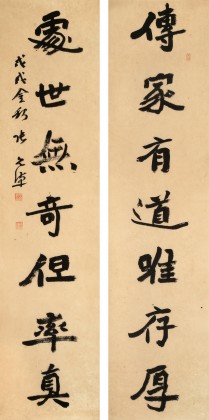 傳家有道唯存厚
處世無奇但率真
戊戌金秋